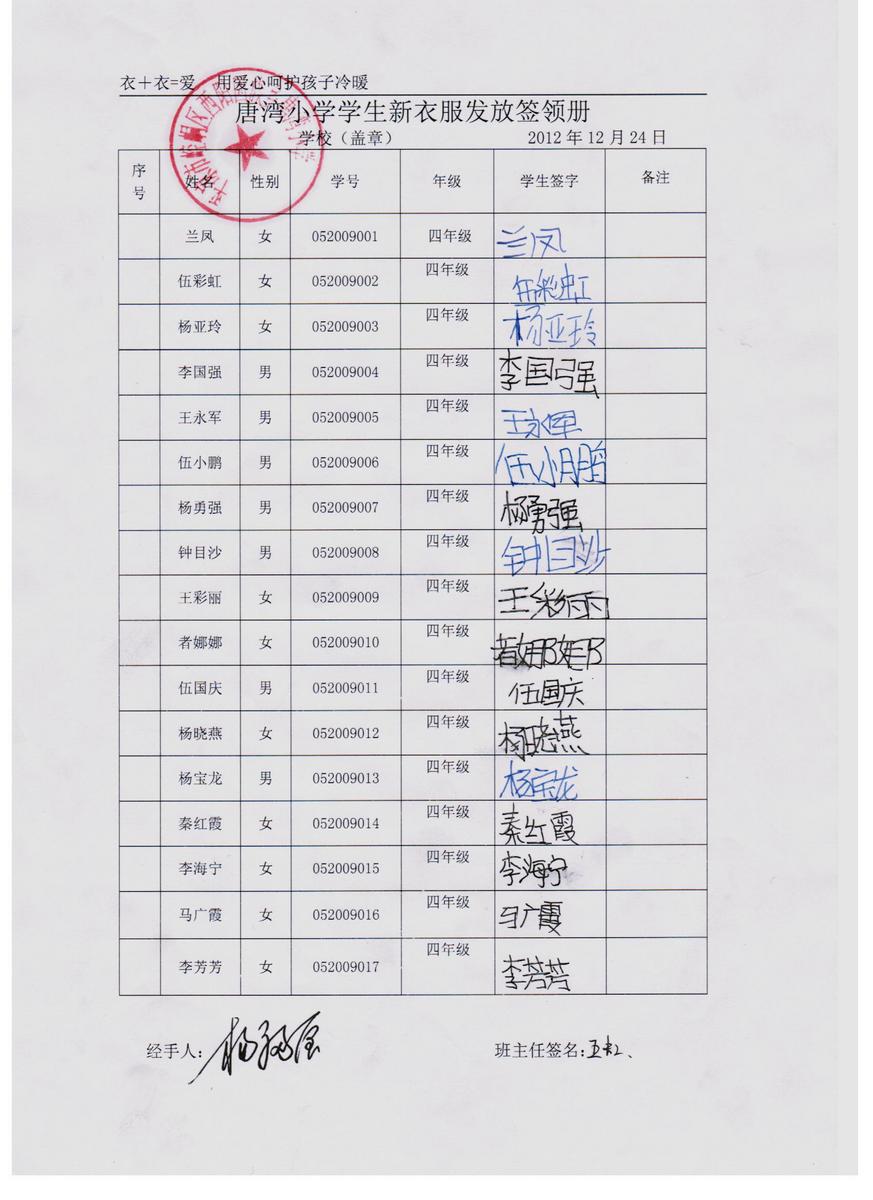 衣＋衣=爱　用爱心呵护孩子冷暖
唐湾小学学生新衣服发放签领册
学校（盖章） 2012 年 12 月 24 日
序号 姓名 性别 学号 年级 学生签字 备注
兰凤 女 052009001 四年级 兰凤
伍彩虹 女 052009002 四年级 伍彩虹
杨亚玲 女 052009003 四年级 杨亚玲
李国强 男 052009004 四年级 李国强
王永军 男 052009005 四年级 王永军
伍小鹏 男 052009006 四年级 伍小鹏
杨勇强 男 052009007 四年级 杨勇强
钟目沙 男 052009008 四年级 钟目沙
王彩丽 女 052009009 四年级 王彩丽
者娜娜 女 052009010 四年级 者娜娜
伍国庆 男 052009011 四年级 伍国庆
杨晓燕 女 052009012 四年级 杨晓燕
杨宝龙 男 052009013 四年级 杨宝龙
秦红霞 女 052009014 四年级 秦红霞
李海宁 女 052009015 四年级 李海宁
马广霞 女 052009016 四年级 马广霞
李芳芳 女 052009017 四年级 李芳芳
经手人： 班主任签名：